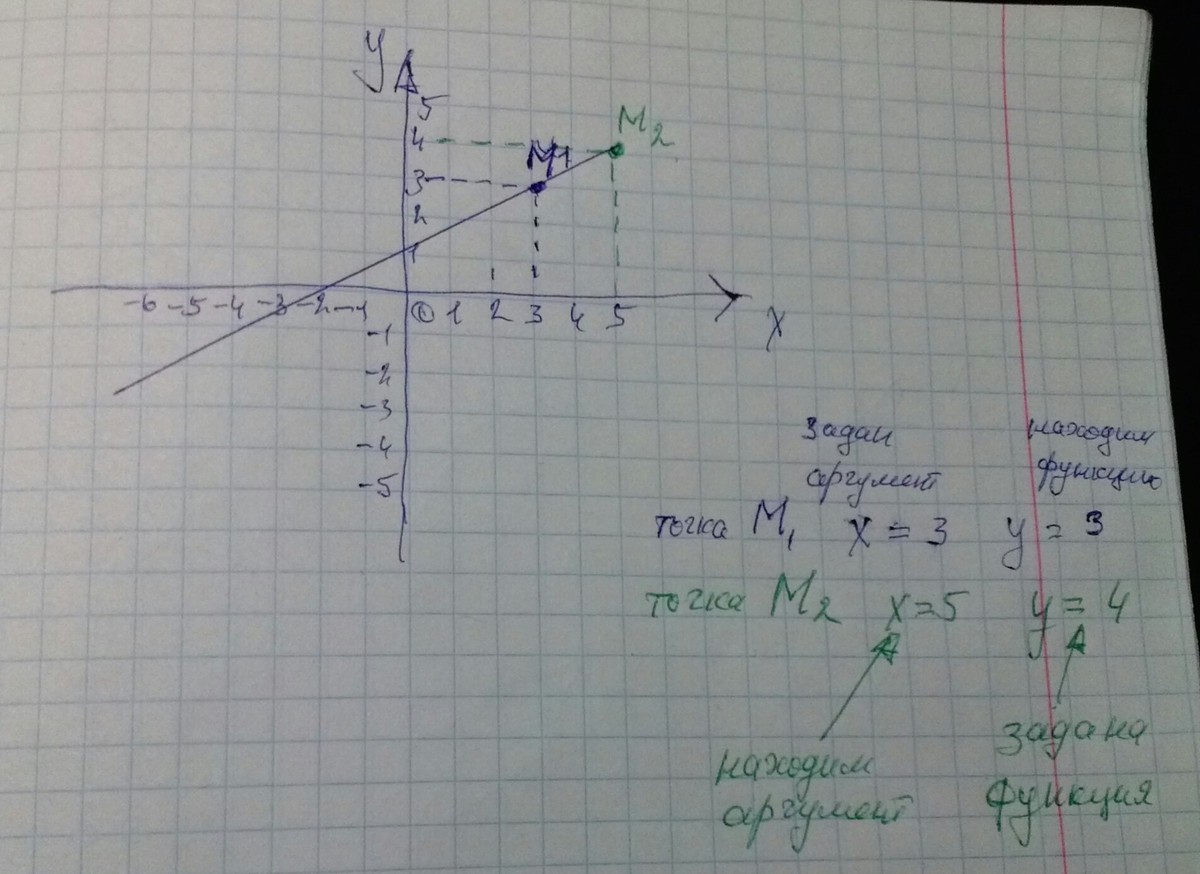 y
5
4
M₂
M1
3
2
1
-6 -5 -4 -3 -2 -1 0 1 2 3 4 5
x
-1
-2
-3
-4
-5
задан находим
аргумент функцию
точка M₁ x = 3 y = 3
точка M₂ x=5 y = 4
находим задана
аргумент функция